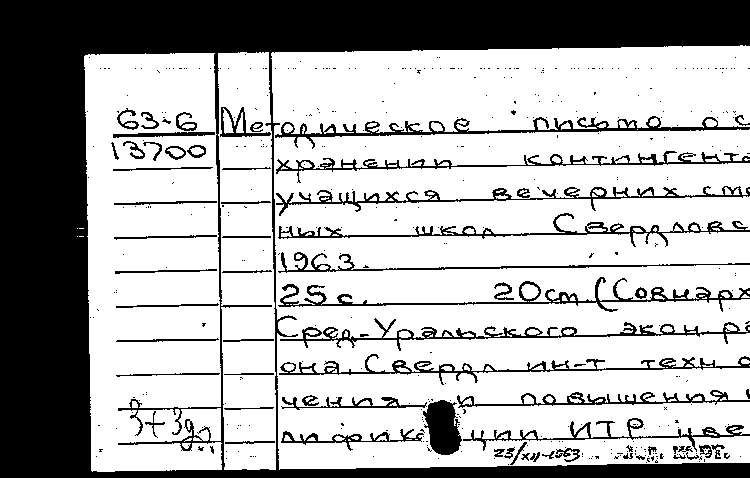 63-6 Методическое письмо о с
13700 хранении контингента
учащихся вечерних сме
ных школ Свердловс
1963.
25 с. 20 см (Совнарх
Сред-Уральского экон ра
она. Свердл ин-т техн о
чения и повышения к
3+3дл лифик ции ИТР цве
23/XII-1963 Доп. карт.